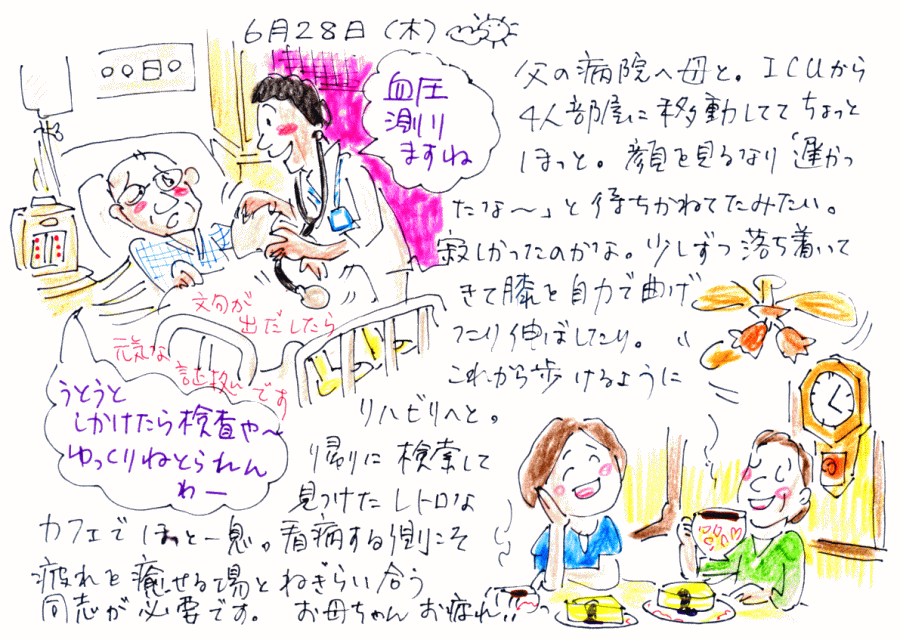 6月28日(木)
血圧
測り
ますね
父の病院へ母と。ICUから
4人部屋に移動してて ちょっと
ほっと。顔を見るなり「遅かっ
たな〜」と待ちかねてたみたい。
寂しかったのかな。少しずつ落ち着いて
きて膝を自力で曲げ
たり伸ばしたり。
これから歩けるように
リハビリへと。
文句が
出だしたら
元気な
証拠んです
うとうと
しかけたら検査や〜
ゆっくりねとられん
わー
帰りに検索して
見つけたレトロな
カフェでほっと一息。看病する側こそ
疲れを癒せる場とねぎらい合う
同志が必要です。 お母ちゃんお疲れ!!